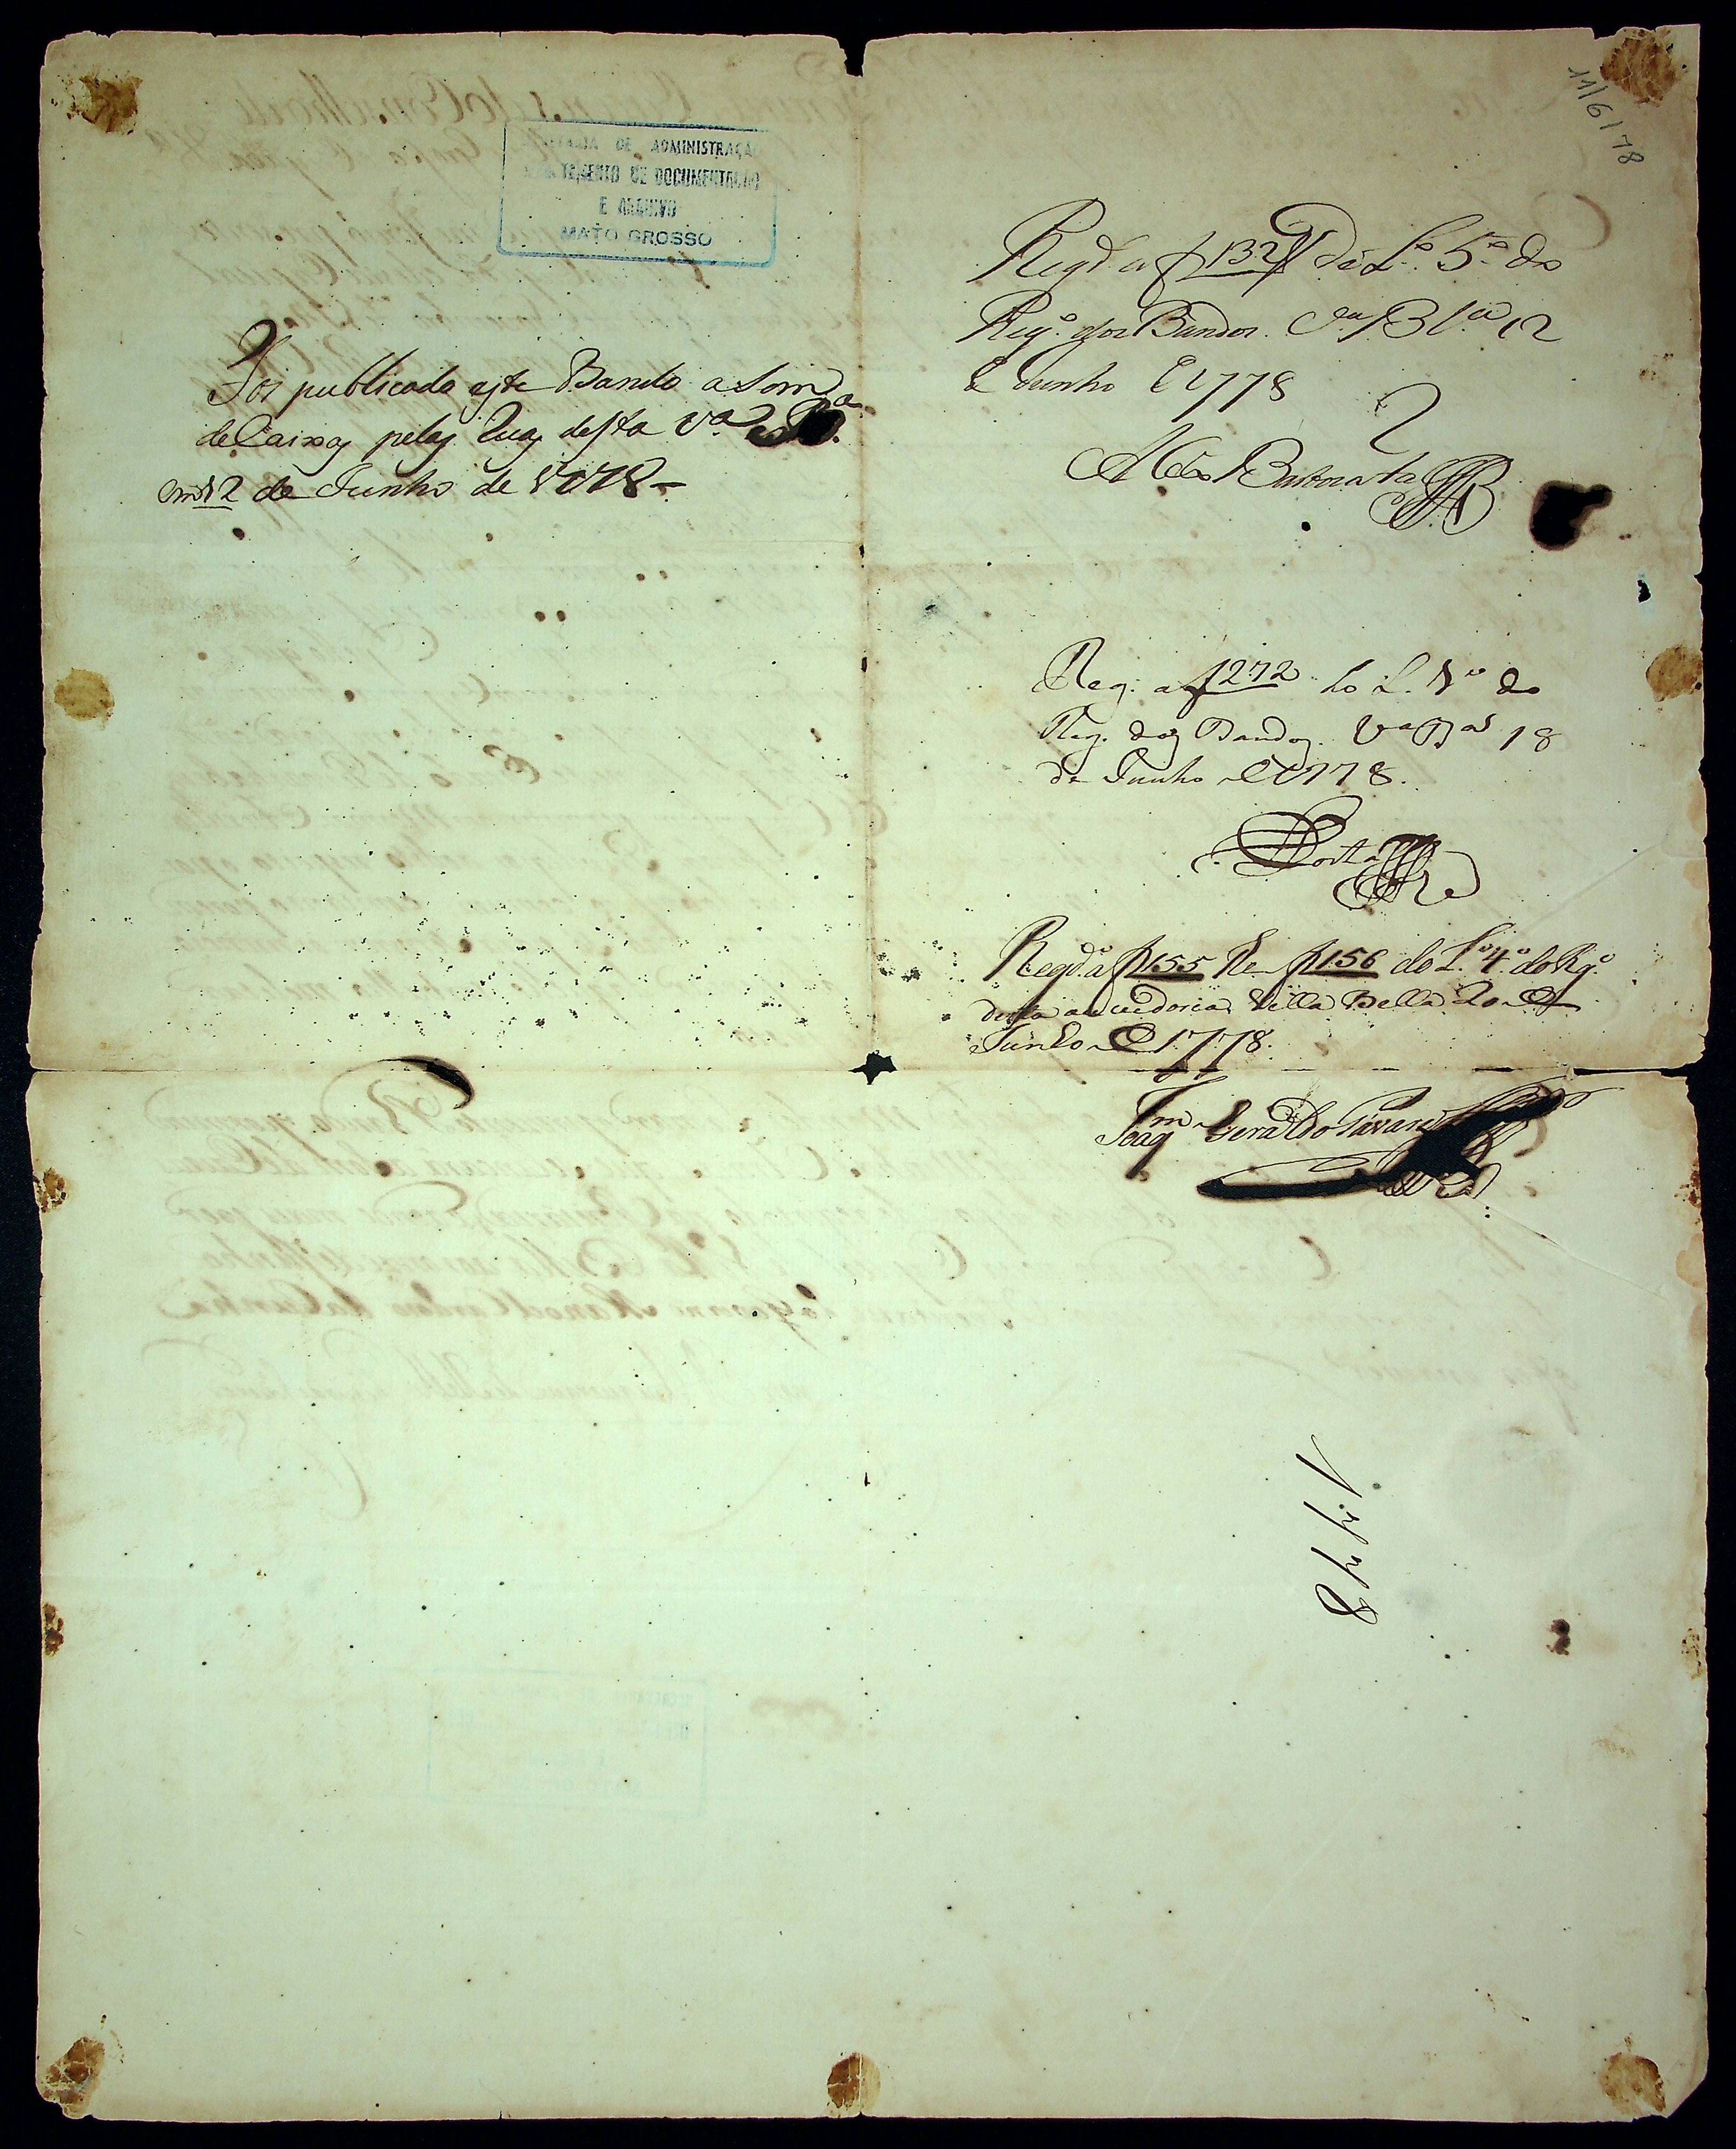 DE ADMINISTRAÇÃO
DE DOCUMENTAÇÃO
E ARQUIVO
MATO GROSSO
11/6/78
Foi publicado este Bando a Som
de Caixas pelas Ruas desta Vª
em 12 de Junho de 1778-
Regd. a f 132 de Lº 5º do
Regº dos Bandos. Vª Bª 12
de Junho de 1778
Reg. a f 272 do L. 1º do
Reg. dos Bandos. Vª Bª 18
de Junho de 1778.
Costa
Regdº a f 155 f 156 do Lº 4º do Rgº
desta Villa Bella 20 de
Junho de 1778.
Joaqm Geraldo Tavares
1778